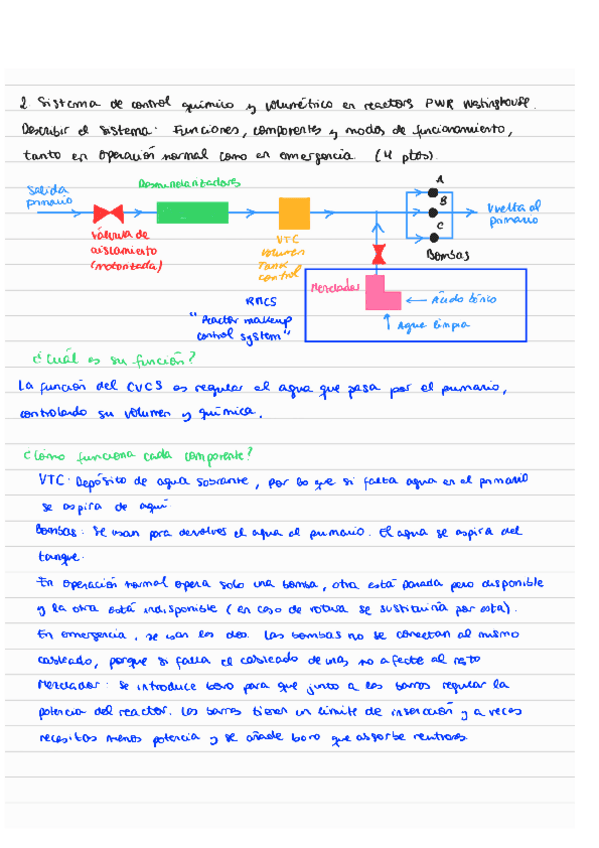 2. Sistema de control químico y volumétrico en reactors PWR Westinghouse.
Describir el sistema: Funciones, componentes y modos de funcionamiento,
tanto en operación normal como en emergencia (4 ptos).
Salida
primario
Desmineralizadores
A
B
C
Vuelta al
primario
Válvula de
aislamiento
(motorizada)
VTC
Volumen
Tank
control
Bombas
RMCS
"Reactor makeup
control system"
Mezclador
Ácido bórico
Agua limpia
¿Cuál es su función?
La función del CVCS es regular el agua que pasa por el primario,
controlando su volumen y química.
¿Cómo funciona cada componente?
VTC: Depósito de agua sobrante, por lo que si falta agua en el primario
se aspira de aquí
Bombas: Se usan para devolver el agua al primario. El agua se aspira del
tanque.
En operación normal opera solo una bomba, otra está parada pero disponible
y la otra está indisponible (en caso de rotura se sustituiría por esta).
En emergencia, se usan las dos. Las bombas no se conectan al mismo
cableado, porque si falla el cableado de una, no afecte al resto
Mezclador: Se introduce boro para que junto a las barras regular la
potencia del reactor. Las barras tienen un límite de inserción y a veces
necesitas menos potencia y se añade boro que absorbe neutrones